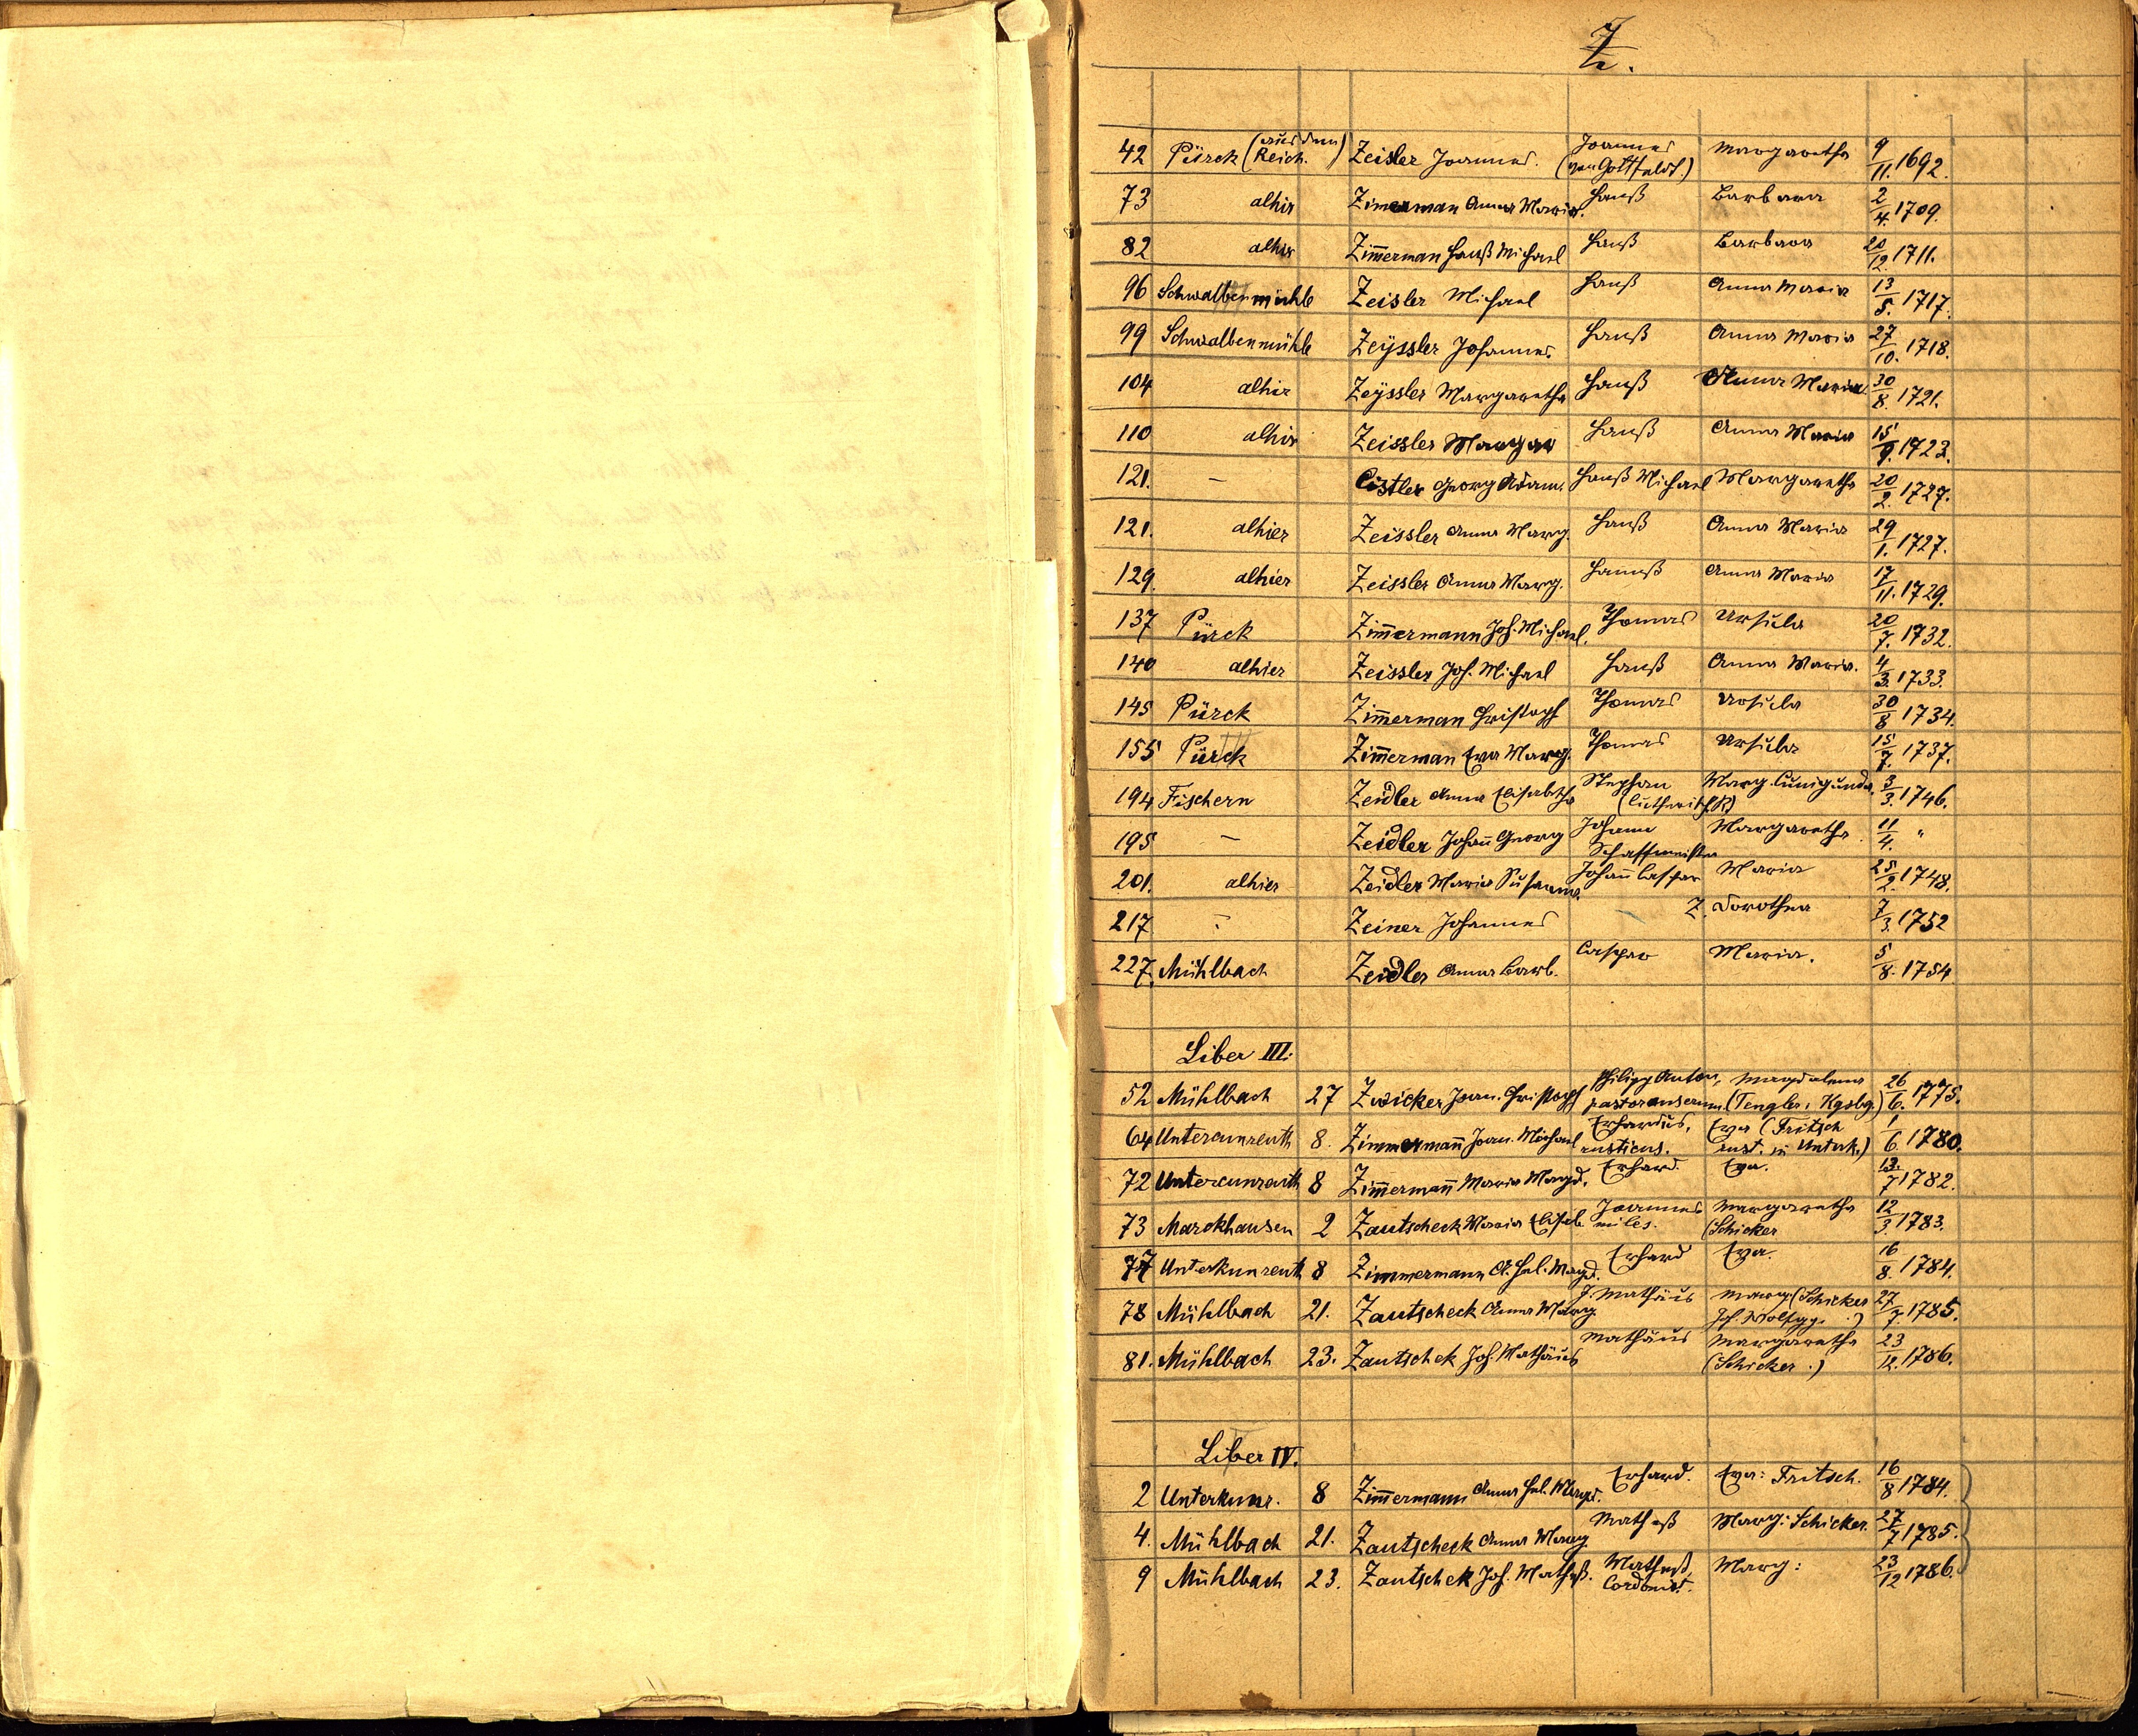 Z.
42 Pürck (aus dem Reich.) Zeisler Joannes. Joannes (von Gottfaldt.) Margaretha 9/11. 1692.
73 alhir Zimerman Anna Maria. Hanß Barbara 2/4. 1709.
82 alhir Zim̄erman Hanß Michael Hanß Barbara 20/12. 1711.
96 Schwalbenmühle Zeisler Michael Hanß Anna Maria 13/5. 1717.
99 Schwalbenmühle Zeÿssler Johannes Hanß Anna Maria 27/10. 1718.
104 alhir Zeÿssler Margaretha Hanß Anna Maria 30/8. 1721.
110 alhir Zeissler Margar Hanß Anna Maria 15/9. 1723.
121. – Cistler Georg Adam. Hanß Michael Margaretha 20/2. 1727.
121. alhier Zeissler Anna Marg. Hanß Anna Maria 29/1. 1727.
129. alhier Zeissler Anna Marg. Hannß Anna Maria 17/11. 1729.
137 Pürck Zim̄ermann Joh. Michael. Thomas Ursula 20/7. 1732.
140 alhier Zeissler Joh. Michael Hanß Anna Maria. 4/3. 1733.
145 Pürck Zim̄erman Christoph Thomas Ursula 30/8 1734.
155 Pürck Zim̄erman Eva Marg. Thomas Ursula 15/7. 1737.
194 Fischern Zeidler Anna Elisabetha Stephan (lutherisch) Marg. Cunigunda. 3/3. 1746.
195 – Zeidler Johan̄ Georg Johann Schaffmeister Margaretha 11/4. "
201. alhier Zeidler Maria Susanna. Johan̄ Caspar Maria 25/2. 1748.
217 – Zeiner Johannes – Z. Dorothea 7/3. 1752
227. Mühlbach Zeidler Anna Barb. Caspar Maria. 5/8. 1754
Liber III:
52 Mühlbach 27 Zwicker Joan. Christoph Philipp Anton, pastor anserum. Magdalena (Tengler, Kgsbg.) 26/6. 1775.
64 Untercunreuth 8. Zimmerman̄ Joan. Michael Erhardus, rusticus. Eva (Fritsch rust. in Unterk.) 1/6 1780.
72 Untercunreuth 8 Zim̄erman̄ Maria Magd. Erhard. Eva. 13./7 1782.
73 Marckhausen 2 Zautscheck Maria Elisab Joannes miles. Margaretha (Schicker 12/3. 1783.
77 Unterkunreuth 8 Zimmermann A. Hel. Magd. Erhard Eva. 16/8. 1784.
78 Mühlbach 21. Zautscheck Anna Marg J. Mathäus Marg (Schicker Joh. Wolfgg.) 27/7. 1785.
81. Mühlbach 23. Zautschek Joh. Mathäus Mathäus Margaretha (Schicker.) 23/12. 1786.
Liber IV.
2 Unterkunr. 8 Zim̄ermann Anna Hel. Magd. Erhard. Eva: Fritsch. 16/8 1784.
4. Mühlbach 21. Zautscheck Anna Marg Matheß Marg: Schicker. 27/7 1785.
9 Mühlbach 23. Zautschek Joh. Matheß. Matheß, Cordonist. Marg: 23/12 1786.